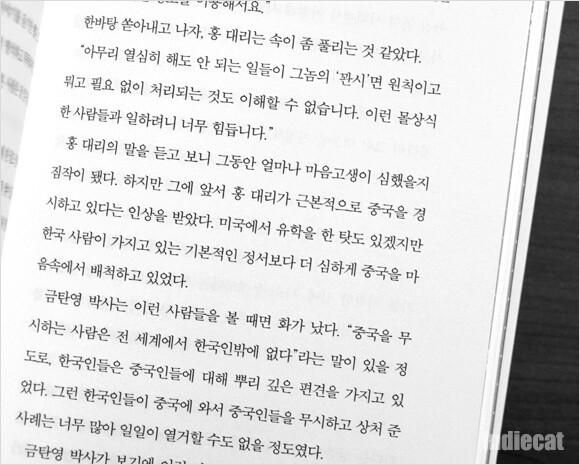 이용해서요."
한바탕 쏟아내고 나자, 홍 대리는 속이 좀 풀리는 것 같았다.
"아무리 열심히 해도 안 되는 일들이 그놈의 '꽌시'면 원칙이고
뭐고 필요 없이 처리되는 것도 이해할 수 없습니다. 이런 몰상식
한 사람들과 일하려니 너무 힘듭니다."
홍 대리의 말을 듣고 보니 그동안 얼마나 마음고생이 심했을지
짐작이 됐다. 하지만 그에 앞서 홍 대리가 근본적으로 중국을 경
시하고 있다는 인상을 받았다. 미국에서 유학을 한 탓도 있겠지만
한국 사람이 가지고 있는 기본적인 정서보다 더 심하게 중국을 마
음속에서 배척하고 있었다.
금탄영 박사는 이런 사람들을 볼 때면 화가 났다. "중국을 무
시하는 사람은 전 세계에서 한국인밖에 없다"라는 말이 있을 정
도로, 한국인들은 중국인들에 대해 뿌리 깊은 편견을 가지고 있
었다. 그런 한국인들이 중국에 와서 중국인들을 무시하고 상처 준
사례는 너무 많아 일일이 열거할 수도 없을 정도였다.
금탄영 박사가 보기에
indiecat